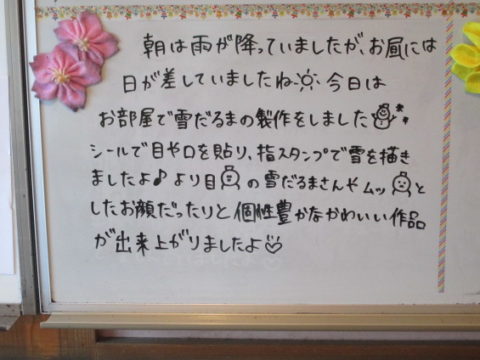 朝は雨が降っていましたが、お昼には
日が差していましたね 今日は
お部屋で雪だるまの製作をしました
シールで目や口を貼り、指スタンプで雪を描き
ましたよ♪より目 の雪だるまさんやムッ と
したお顔だったりと個性豊かなかわいい作品
が出来上がりましたよ